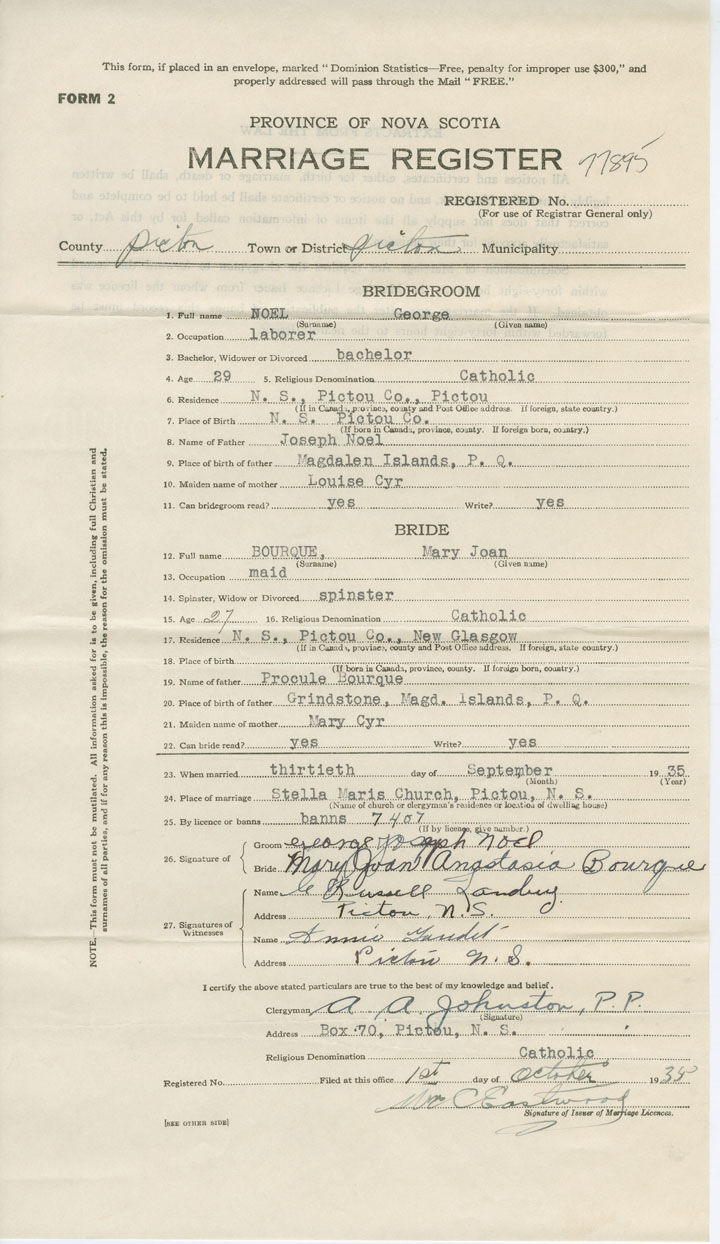 This form, if placed in an envelope, marked "Dominion Statistics—Free, penalty for improper use $300," and
properly addressed will pass through the Mail "FREE."
FORM 2
PROVINCE OF NOVA SCOTIA
MARRIAGE REGISTER 77895
REGISTERED No.
(For use of Registrar General only)
County Pictou Town or District Pictou Municipality
BRIDEGROOM
1. Full name NOEL George
(Surname) (Given name)
2. Occupation laborer
3. Bachelor, Widower or Divorced bachelor
4. Age 29 5. Religious Denomination Catholic
6. Residence N. S., Pictou Co., Pictou
(If in Canada, province, county and Post Office address. If foreign, state country.)
7. Place of Birth N. S. Pictou Co.
(If born in Canada, province, county. If foreign born, country.)
8. Name of Father Joseph Noel
9. Place of birth of father Magdalen Islands, P. Q.
10. Maiden name of mother Louise Cyr
11. Can bridegroom read? yes Write? yes
BRIDE
12. Full name BOURQUE, Mary Joan
(Surname) (Given name)
13. Occupation maid
14. Spinster, Widow or Divorced spinster
15. Age 27 16. Religious Denomination Catholic
17. Residence N. S., Pictou Co., New Glasgow
(If in Canada, province, county and Post Office address. If foreign, state country.)
18. Place of birth
(If born in Canada, province, county. If foreign born, country.)
19. Name of father Procule Bourque
20. Place of birth of father Grindstone, Magd. Islands, P. Q.
21. Maiden name of mother Mary Cyr
22. Can bride read? yes Write? yes
23. When married thirtieth day of September 1935
(Month) (Year)
24. Place of marriage Stella Maris Church, Pictou, N. S.
(Name of church or clergyman's residence or location of dwelling house)
25. By licence or banns banns 7407
(If by licence, give number.)
26. Signature of Groom George Joseph Noel
Bride Mary Joan Anastasia Bourque
27. Signatures of Witnesses
Name C Russell Landry
Address Pictou, N.S.
Name Annie Gaudet
Address Pictou N. S.
I certify the above stated particulars are true to the best of my knowledge and belief.
Clergyman A A Johnston, P.P.
(Signature)
Address Box 70, Pictou, N. S.
Religious Denomination Catholic
Registered No. Filed at this office 1st day of October 1935
Wm C Eastwood
Signature of Issuer of Marriage Licences.
[SEE OTHER SIDE]
NOTE.—This form must not be mutilated. All information asked for is to be given, including full Christian and
surnames of all parties, and if for any reason this is impossible, the reason for the omission must be stated.